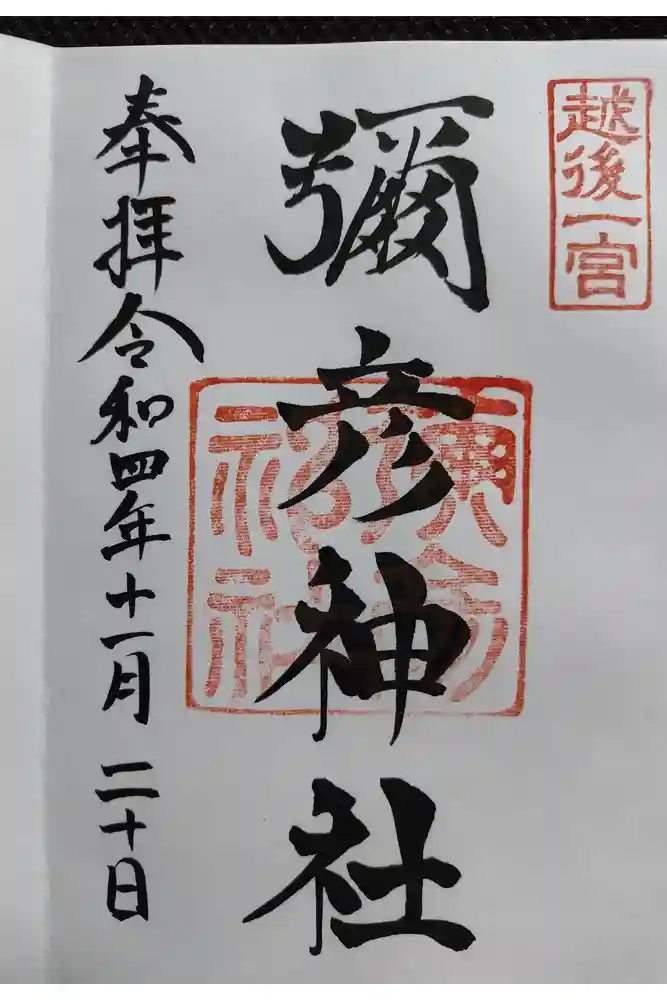 越後一宮
彌彦神社
奉拝令和四年十一月二十日